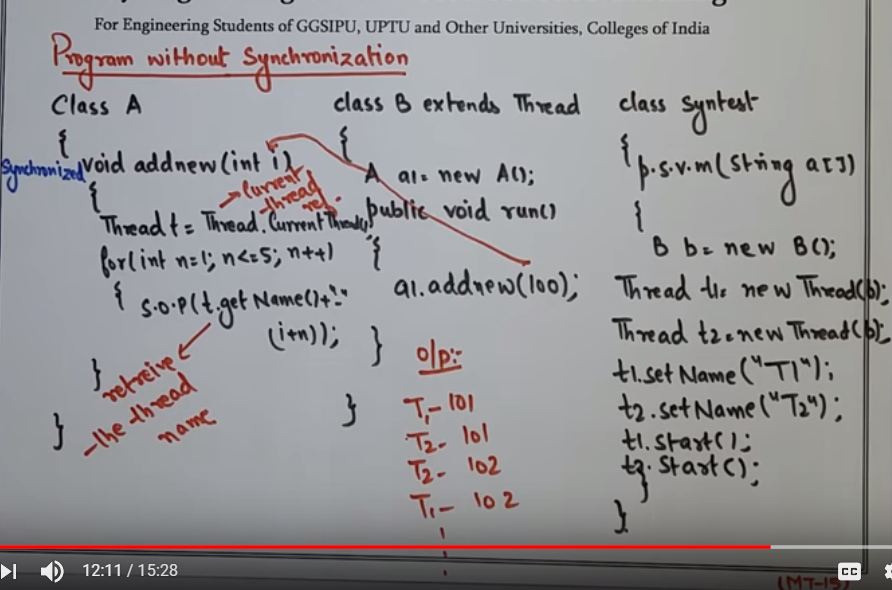 For Engineering Students of GGSIPU, UPTU and Other Universities, Colleges of India
Program without Synchronization
Class A
{
Synchronized void addnew(int i)
{
→ Current thread ref.
Thread t = Thread.CurrentThread()
for(int n=1; n<=5; n++)
{ S.O.P(t.getName()+"-"
(i+n));
}
retreive
the thread
name
}
class B extends Thread
{
A a1 = new A();
public void run()
{
a1.addnew(100);
}
}
o/p:-
T1- 101
T2- 101
T2- 102
T1- 102
class Syntest
{
p.s.v.m(String a[])
{
B b = new B();
Thread t1= new Thread(b);
Thread t2=new Thread(b);
t1.setName("T1");
t2.setName("T2");
t1.start();
t2.start();
}
}
12:11 / 15:28
CC
(MT-15)